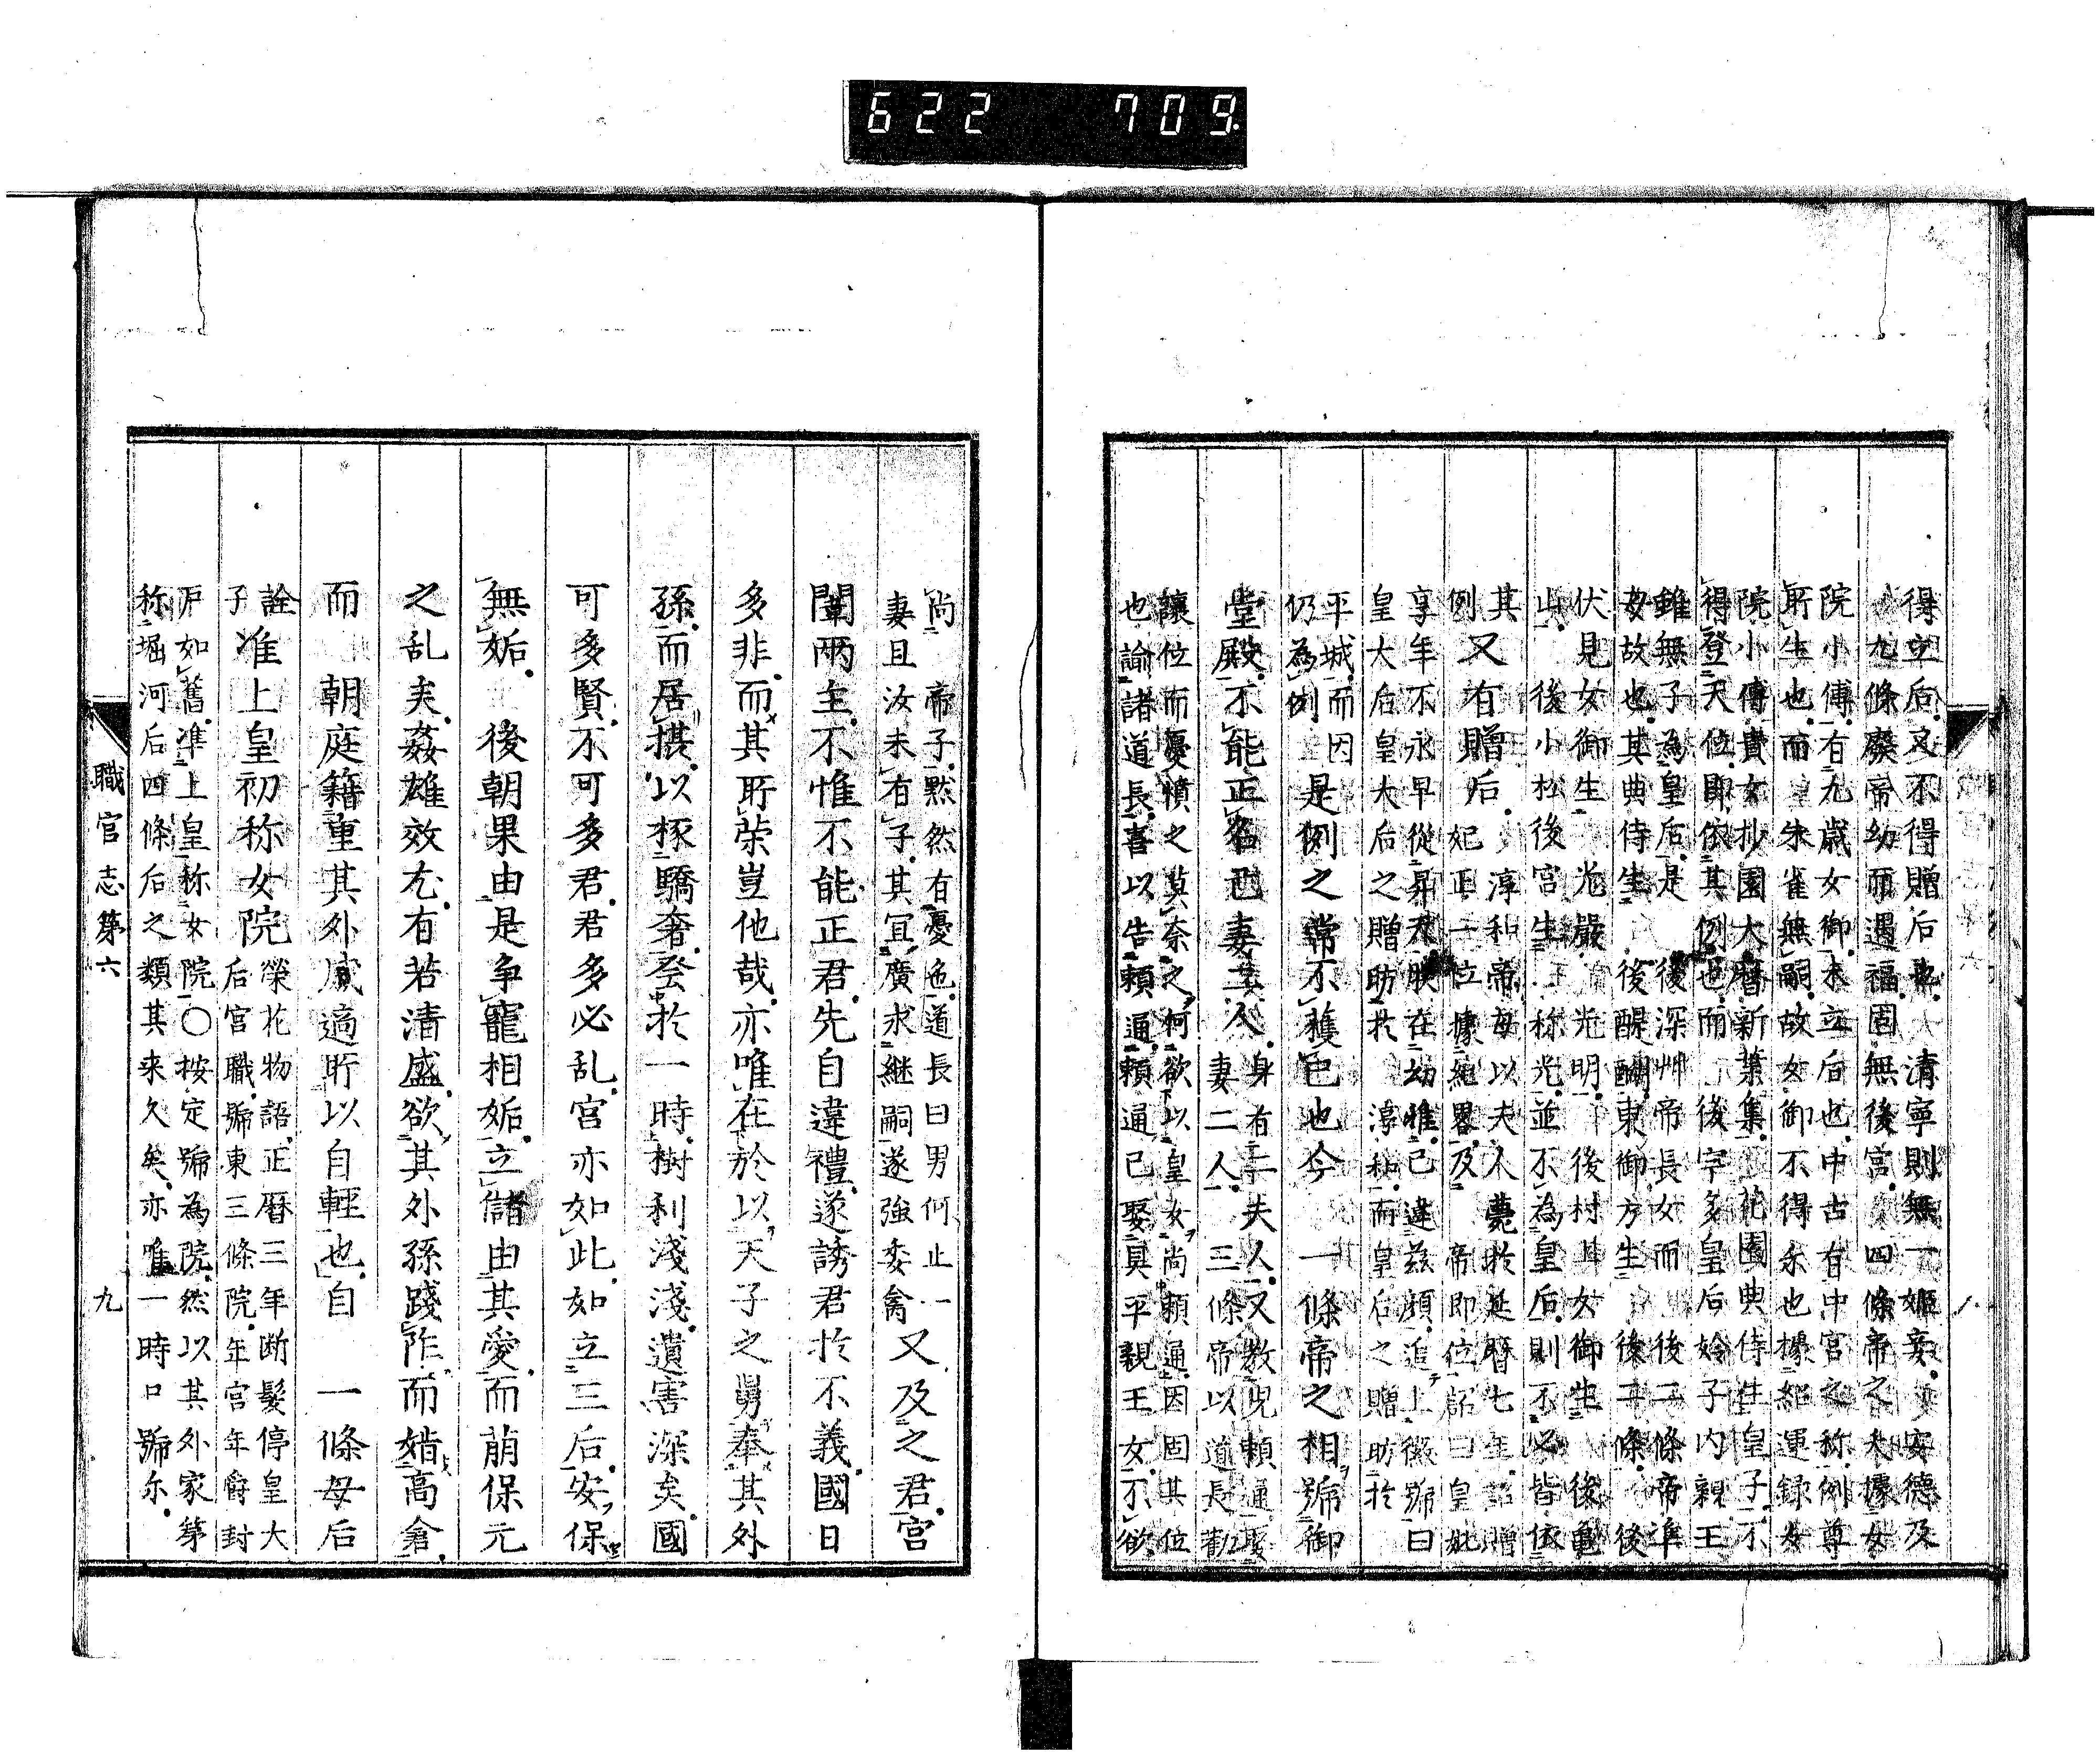 622 709.
得立后又不得贈后者 清寧則無一姬妾 安德及
九條廢帝幼而遇福固無後宮 四條帝之夫據女
院小傳有九歲女御未立后也中古有中宮之称例尊
所生也而 朱雀無嗣故女御不得永也據紹運録女
院小傳貴女抄園大曆新葉集 花園典侍生皇子不
得登天位即依其例也而 後宇多皇后姈子内親王
雖無子為皇后是 後深艸帝長女而 後二條帝準
母故也其典侍生 後醍醐東御方生 後二條 後
伏見女御生 光嚴 光明 後村上女御生 後龜
山 後小松後宮生 称光並不為皇后則不必皆依
其 淳和帝母以夫人薨於延曆七年詔贈
例 又有贈后 妃正一位據紹畧及 帝即位詔曰皇妣
享年不永早從昇天朕在幼稚已違慈顏追上徽號曰
皇大后皇大后之贈昉於 淳和而皇后之贈昉於
平城而因
仍為例 是例之常不獲已也今 一條帝之相號御
堂殿不能正名已妻二人 身有二夫人又教兒頼通娶
妻二人 三條帝以道長勸
讓位而憂憤之莫奈之何欲以皇女尚頼通因固其位
也諭諸道長喜以告頼通頼通已娶具平親王女不欲
尚 帝子黙然有憂色道長曰男何止一
妻且汝未有子其宜廣求繼嗣遂強委禽 又及之君宮
闈兩主不惟不能正君先自違禮遂誘君於不義國日
多非而其所荣豈他哉亦唯在於以天子之舅奉其外
孫而居摂以極驕奢登於一時樹利淺淺遺害深矣國
可多賢不可多君君多必乱宮亦如此如立三后安保
無妬 後朝果由是争寵相妬立儲由其愛而萠保元
之乱矣姦雄效尤有若清盛欲其外孫踐阼而婚高倉
而 朝庭籍重其外戚適所以自輕也自 一條母后
詮 榮花物語正曆三年断髮停皇大
子 准上皇初称女院 后宮職號東三條院年宮年爵封
戸如舊準上皇称女院○按定號為院然以其外家第
称堀河后四條后之類其来久矣亦唯一時口號尔
職官志第六
九
八